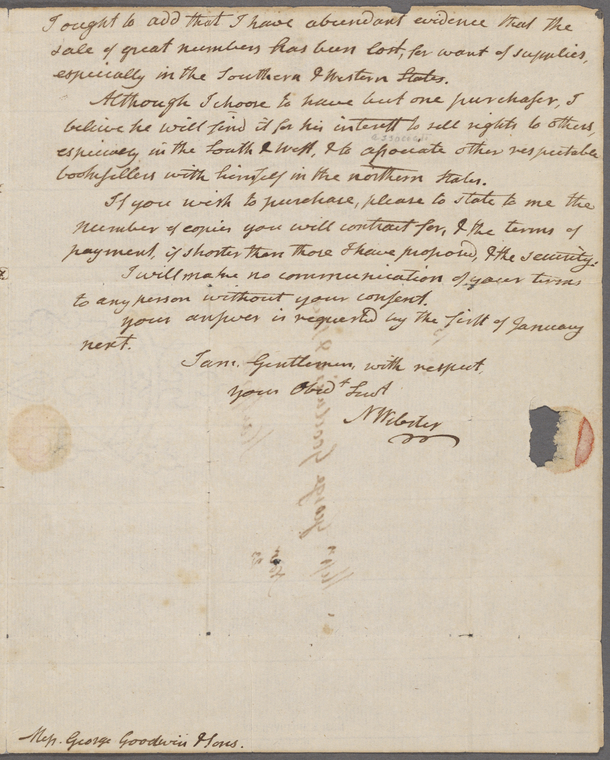 I ought to add that I have abundant evidence that the
sale of great numbers has been lost, for want of supplies,
especially in the Southern & Western States.
Although I choose to have but one purchaser, I
believe he will find it for his interest to sell rights to others,
especially in the South & West, & to associate other respectable
booksellers with himself in the northern States.
If you wish to purchase, please to state to me the
number of copies you will contract for, & the terms of
payment, if shorter than those I have proposed, & the security.
I will make no communication of your terms
to any person without your consent.
Your answer is requested by the first of January
next.
I am, Gentlemen, with respect,
your Obedt Servt
NWebster
Mess. George Goodwin & Sons.